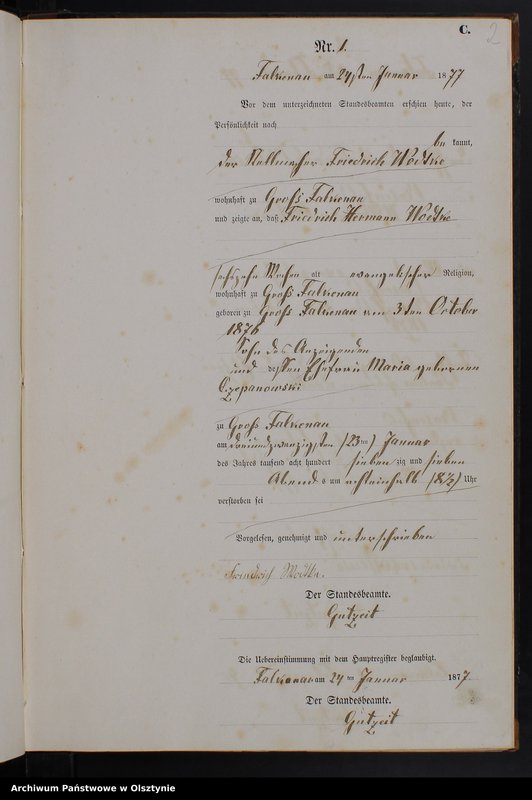 C. 2
Nr. 1.
Falkenau am 24sten Januar 1877
Vor dem unterzeichneten Standesbeamten erschien heute, der
Persönlichkeit nach
be kannt,
der Friedrich Wodtke
wohnhaft zu Groß Falkenau
und zeigte an, daß Friedrich Hermann Wodtke
sechszehn Wochen alt evangelischer Religion,
wohnhaft zu Groß Falkenau
geboren zu Groß Falkenau am 3ten October
1876
Sohn des Anzeigenden
und dessen Ehefrau Maria gebornen
Czepanowski
zu Groß Falkenau
am dreiundzwanzigsten (23ten) Januar
des Jahres tausend acht hundert sieben zig und sieben
Abends um achteinhalb (8½) Uhr
verstorben sei
Vorgelesen, genehmigt und unterschrieben
Friedrich Wodtke.
Der Standesbeamte.
Gutzeit
Die Uebereinstimmung mit dem Hauptregister beglaubigt.
Falkenau am 24 ten Januar 1877
Der Standesbeamte.
Gutzeit
Archiwum Państwowe w Olsztynie